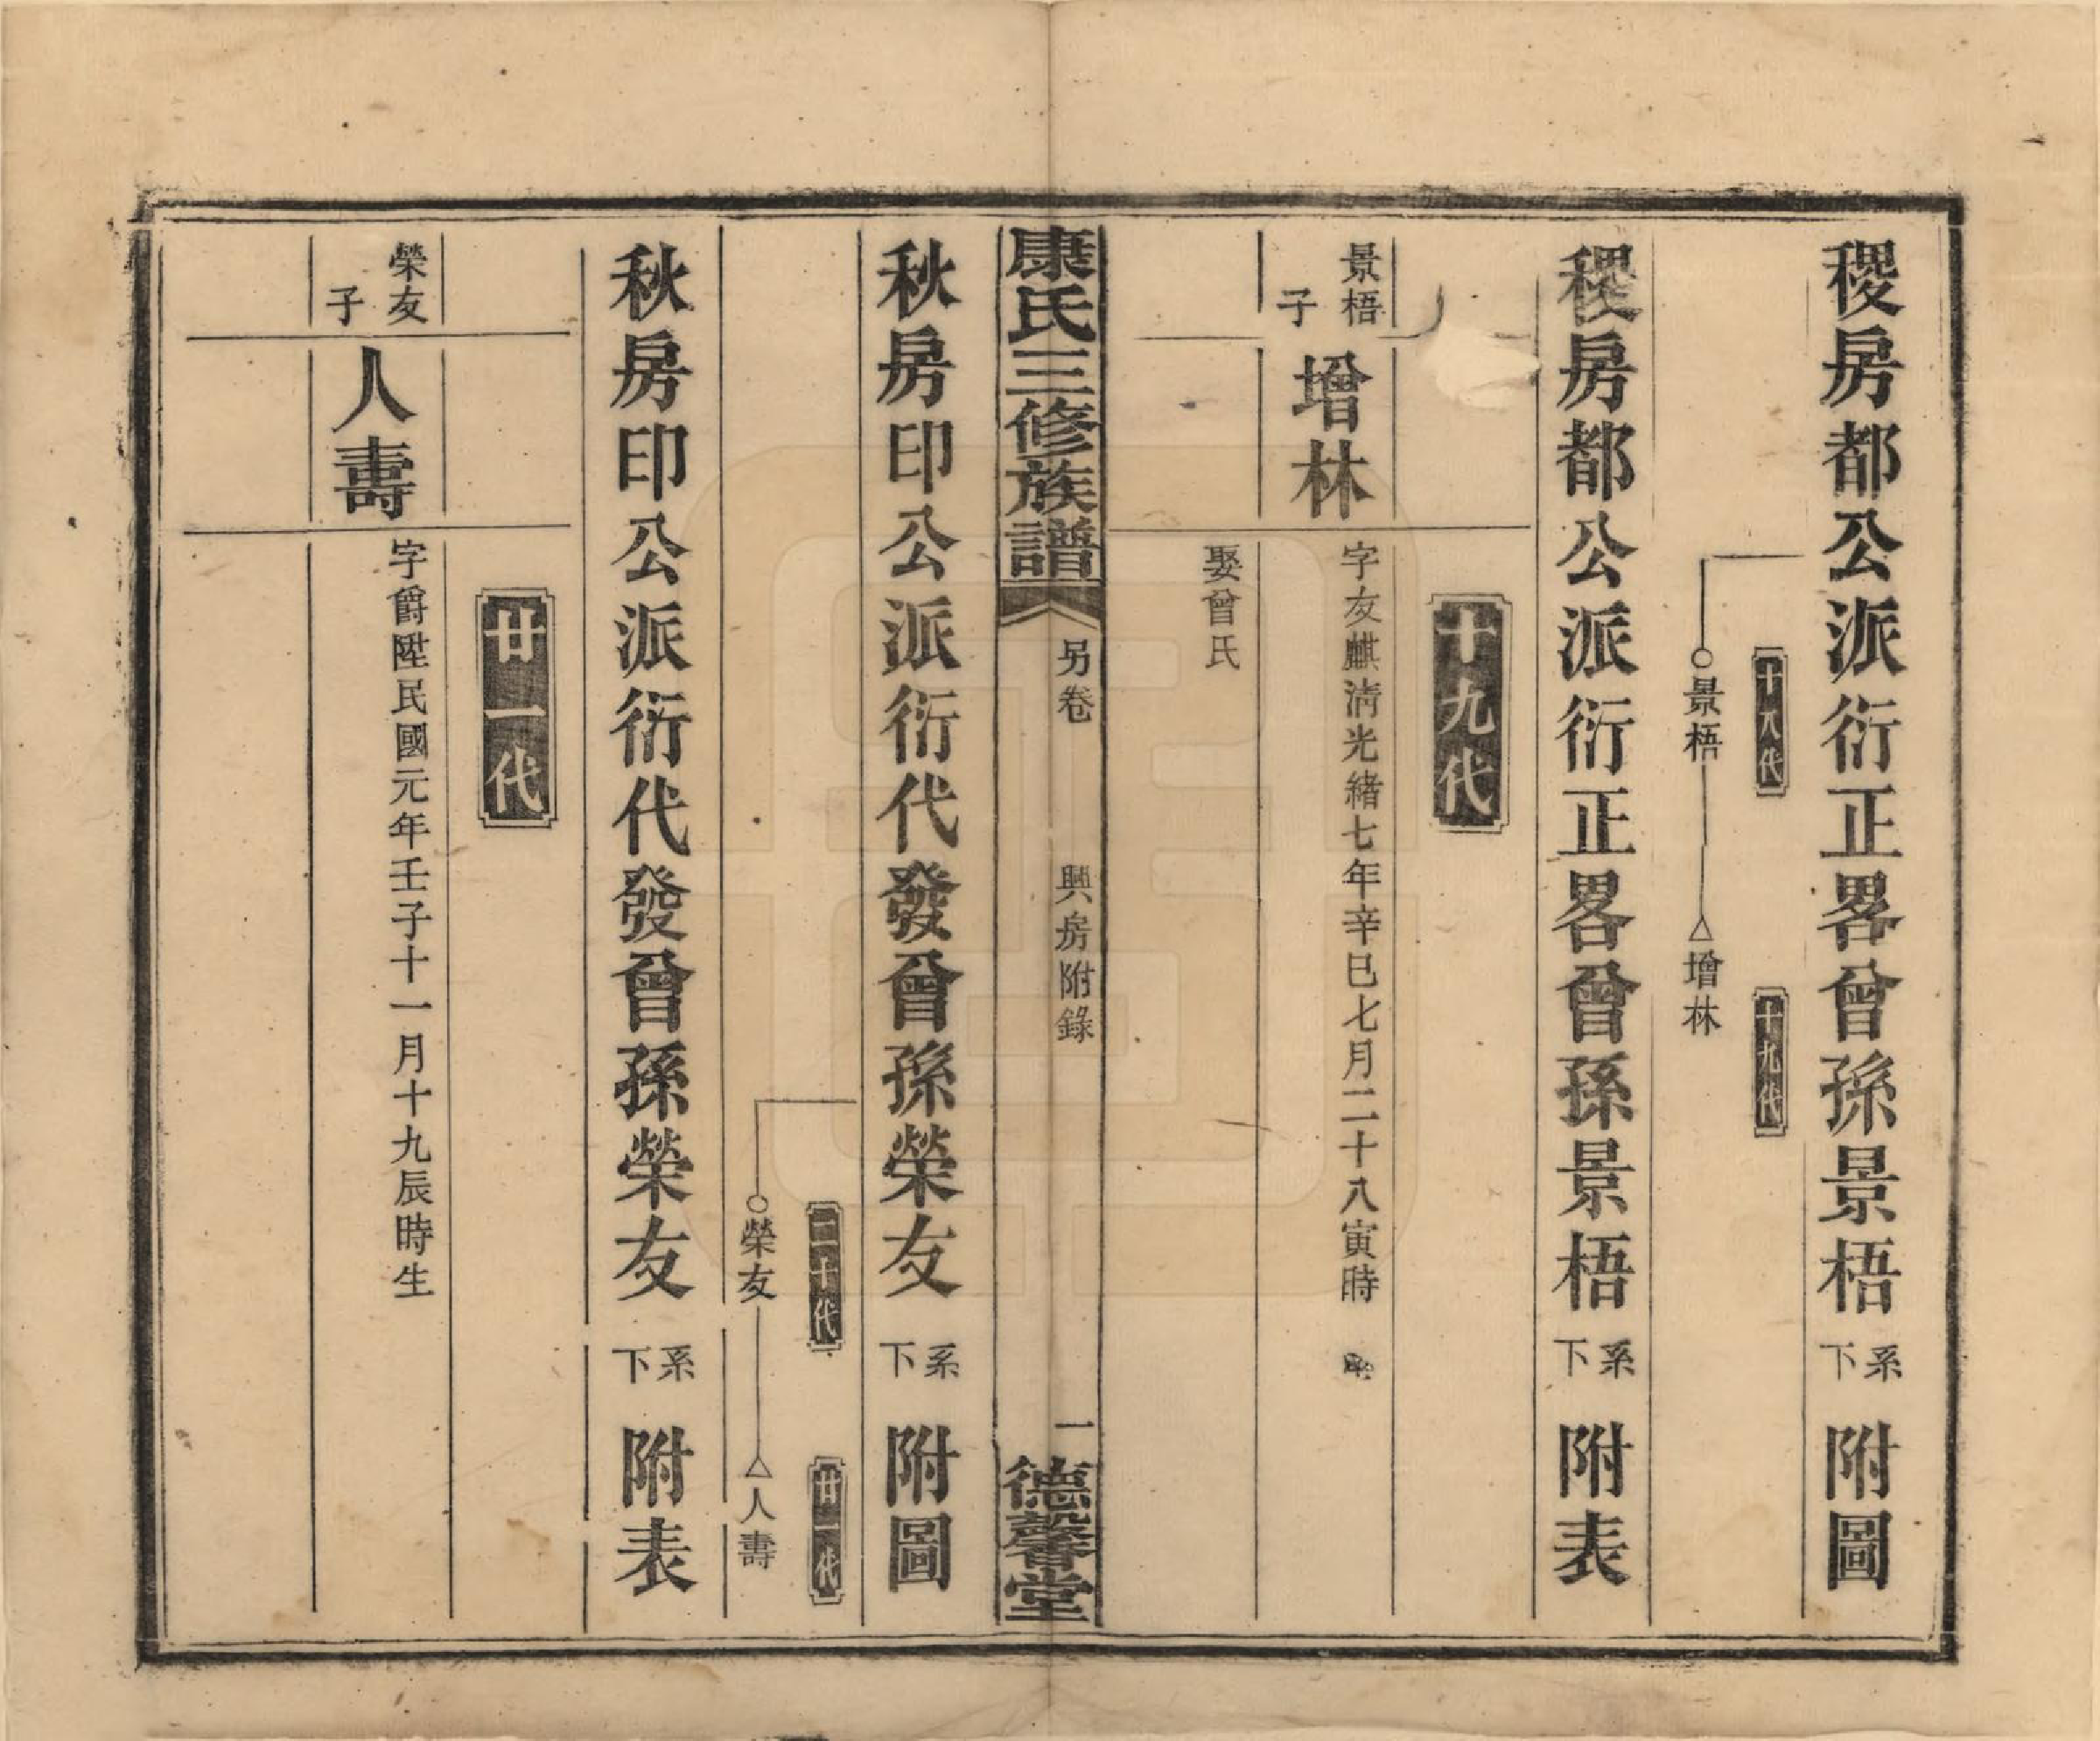 稷房都公派衍正畧曾孫景梧系下附圖
十八代
十九代
景梧
增林
稷房都公派衍正畧曾孫景梧系下附表
十九代
景梧子
增林
字友麒清光緒七年辛巳七月二十八寅時
娶曾氏
康氏三修族譜
另卷
興房附錄
一
德馨堂
秋房印公派衍代發曾孫榮友系下附圖
二十代
廿一代
榮友
人壽
秋房印公派衍代發曾孫榮友系下附表
廿一代
榮友子
人壽
字爵陞民國元年壬子十一月十九辰時生